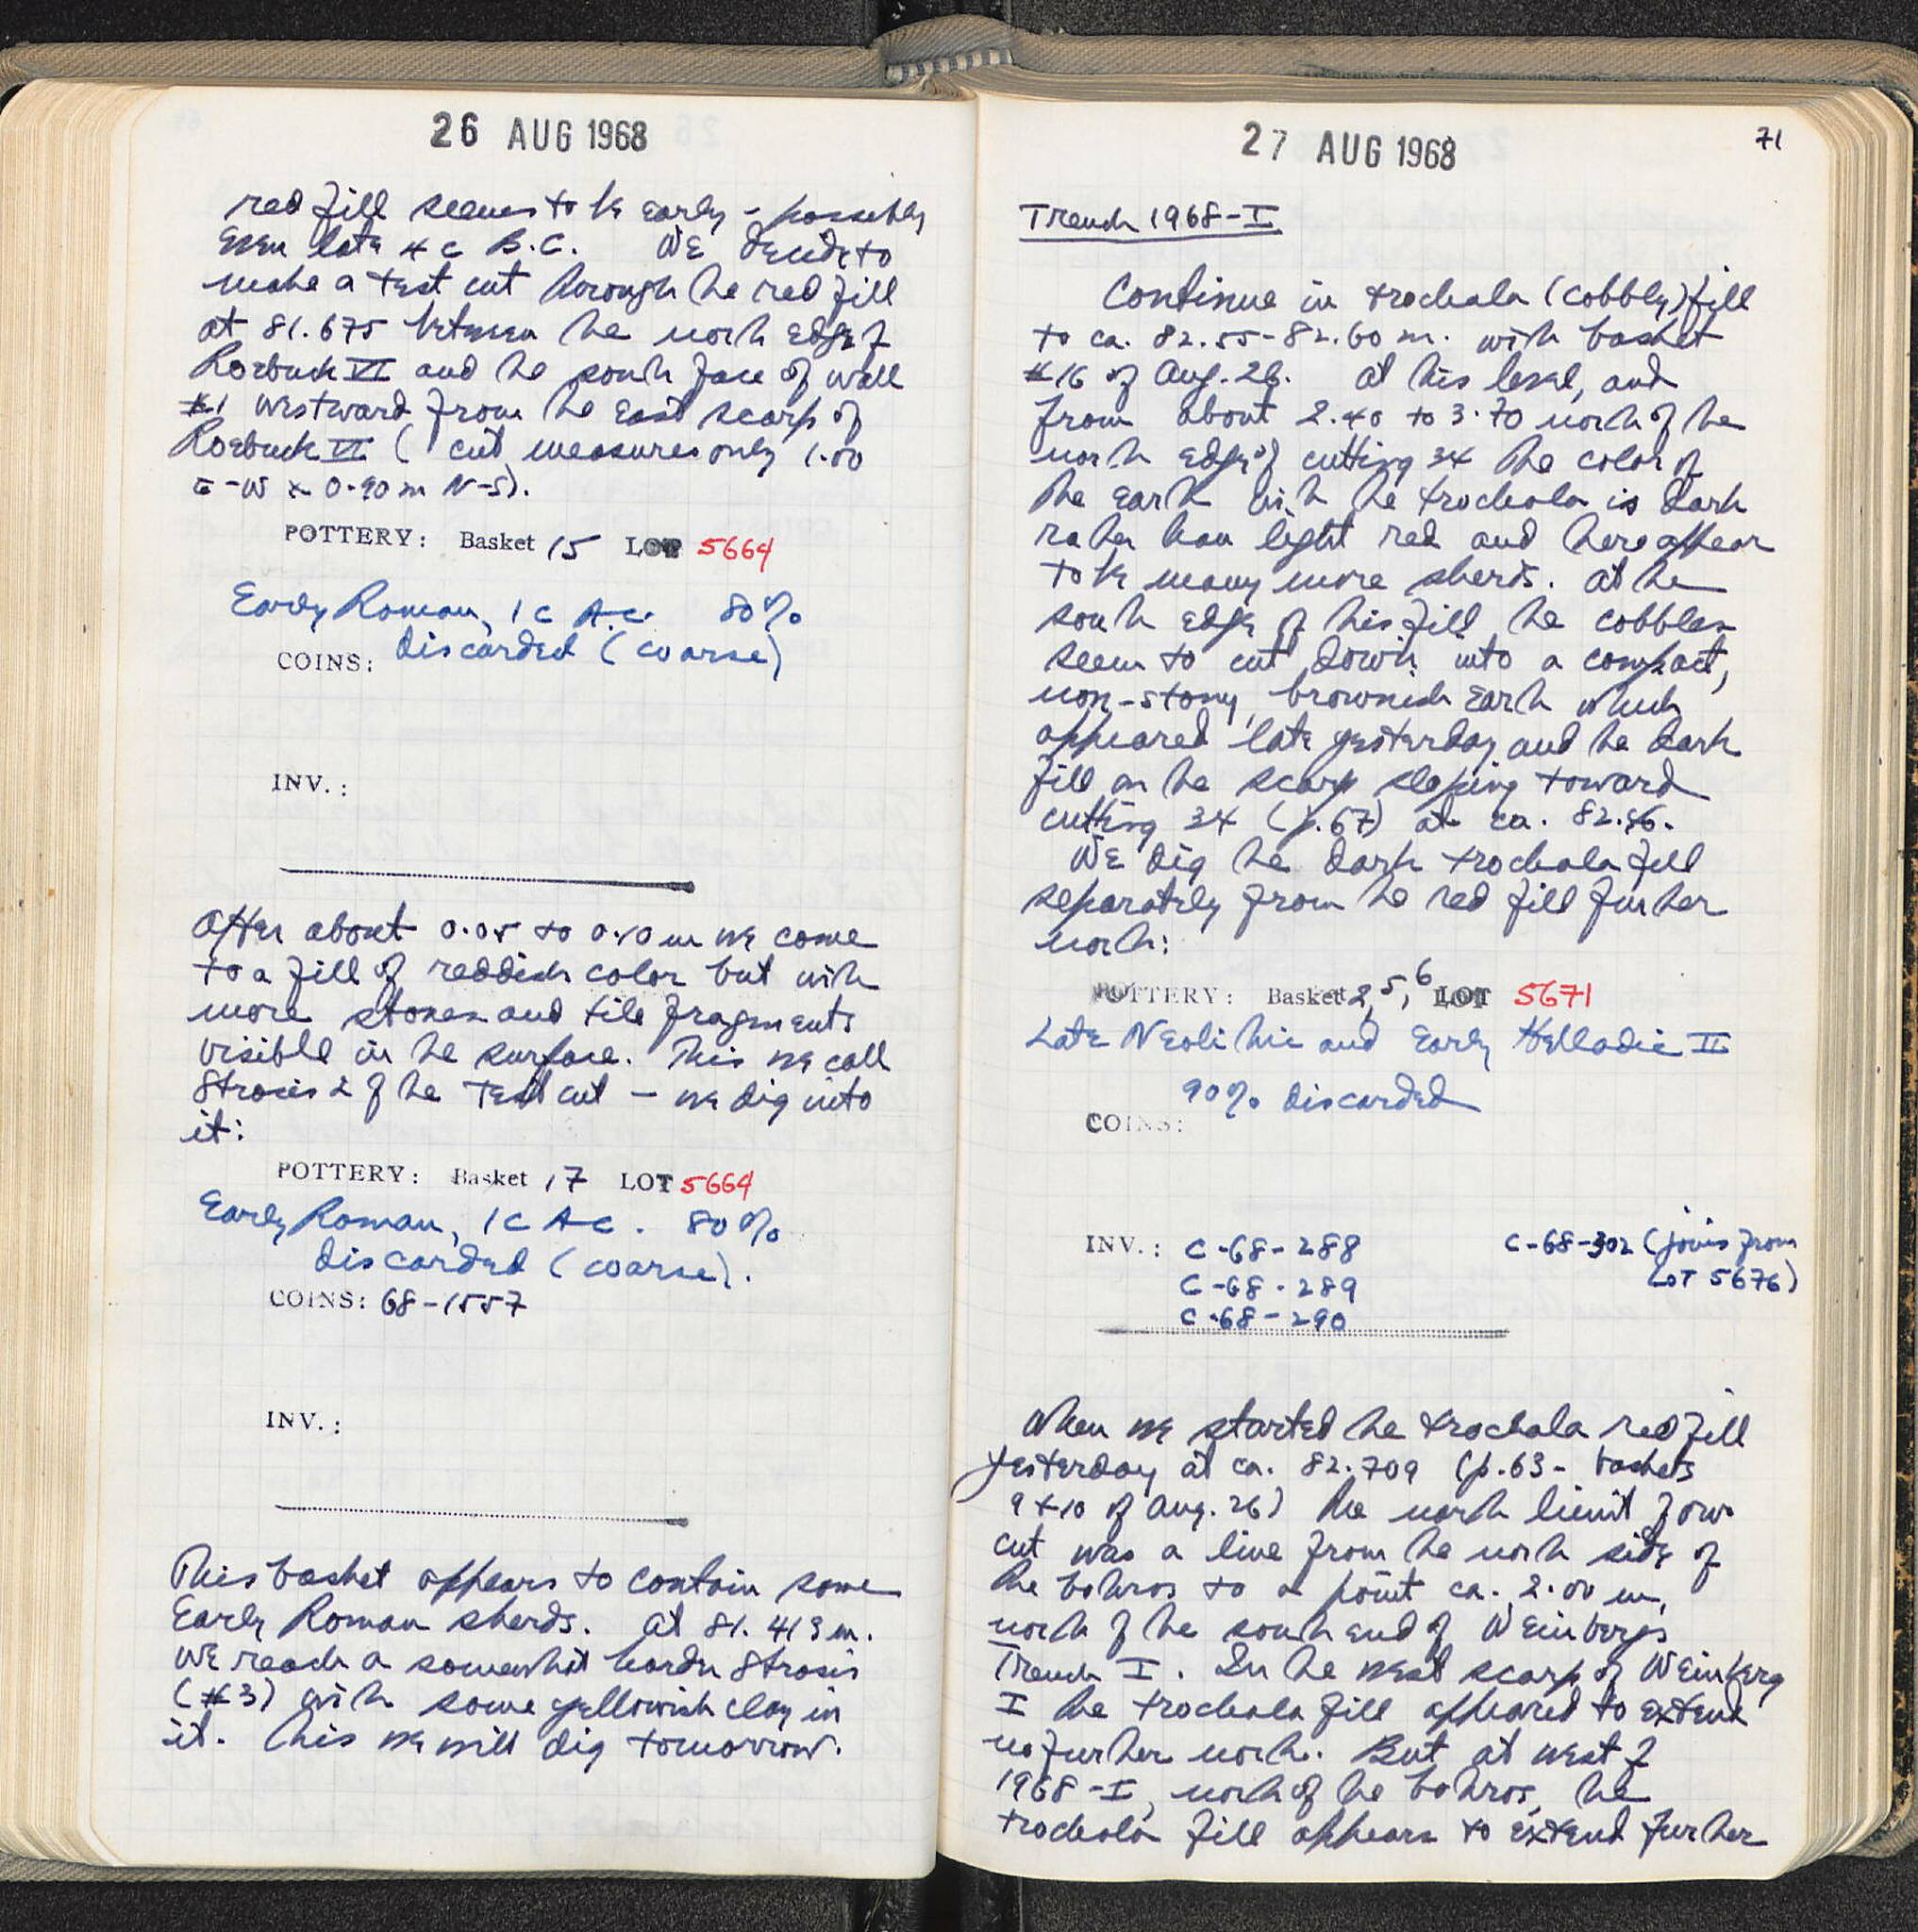 26 AUG 1968
red fill seems to be early - possibly
even late 4 c B.C. We decide to
make a test cut through the red fill
at 81.675 between the north edge of
Roebuck VI and the south face of wall
#1 westward from the east scarp of
Roebuck VI ( cut measures only 1.00
E-W x 0.90 m N-S).
POTTERY: Basket 15 LOT 5664
Early Roman, 1 C A.C. 80%
discarded (coarse)
COINS:
INV.:
After about 0.05 to 0.10 m we come
to a fill of reddish color but with
more stones and tile fragments
visible in the surface. This we call
Strosis 2 of the Test cut - we dig into
it:
POTTERY: Basket 17 LOT 5664
Early Roman, 1 C A C. 80%
discarded (coarse).
COINS: 68-1557
INV.:
This basket appears to contain some
Early Roman sherds. At 81.413 m.
we reach a somewhat harder Strosis
(#3) with some yellowish clay in
it. This we will dig tomorrow.
27 AUG 1968
71
Trench 1968-I
Continue in trochala (cobbly) fill
to ca. 82.55-82.60 m. with basket
#16 of Aug. 26. At this level, and
from about 2.40 to 3.70 north of the
north edge of cutting 34 the color of
the earth with the trochala is dark
rather than light red and there appear
to be many more sherds. At the
south edge of this fill the cobbles
seem to cut down into a compact,
non-stony, brownish earth which
appeared late yesterday and the dark
fill on the scarp sloping toward
cutting 34 (p.67) at ca. 82.56.
We dig the dark trochala fill
separately from the red fill further
north:
POTTERY: Basket 2, 5, 6 LOT 5671
Late Neolithic and Early Helladic II
90% discarded
COINS:
INV.: C-68-288 C-68-302 (joins from
C-68-289 LOT 5676)
C-68-290
When we started the trochala red fill
yesterday at ca. 82.709 (p.63- baskets
9 + 10 of Aug. 26) the north limit of our
cut was a line from the north side of
the bothros to a point ca. 2.00 m,
north of the south end of Weinbergs
Trench I. In the west scarp of Weinberg
I the trochala fill appeared to extend
no further north. But at west of
1968-I, north of the bothros, the
trochala fill appears to extend further